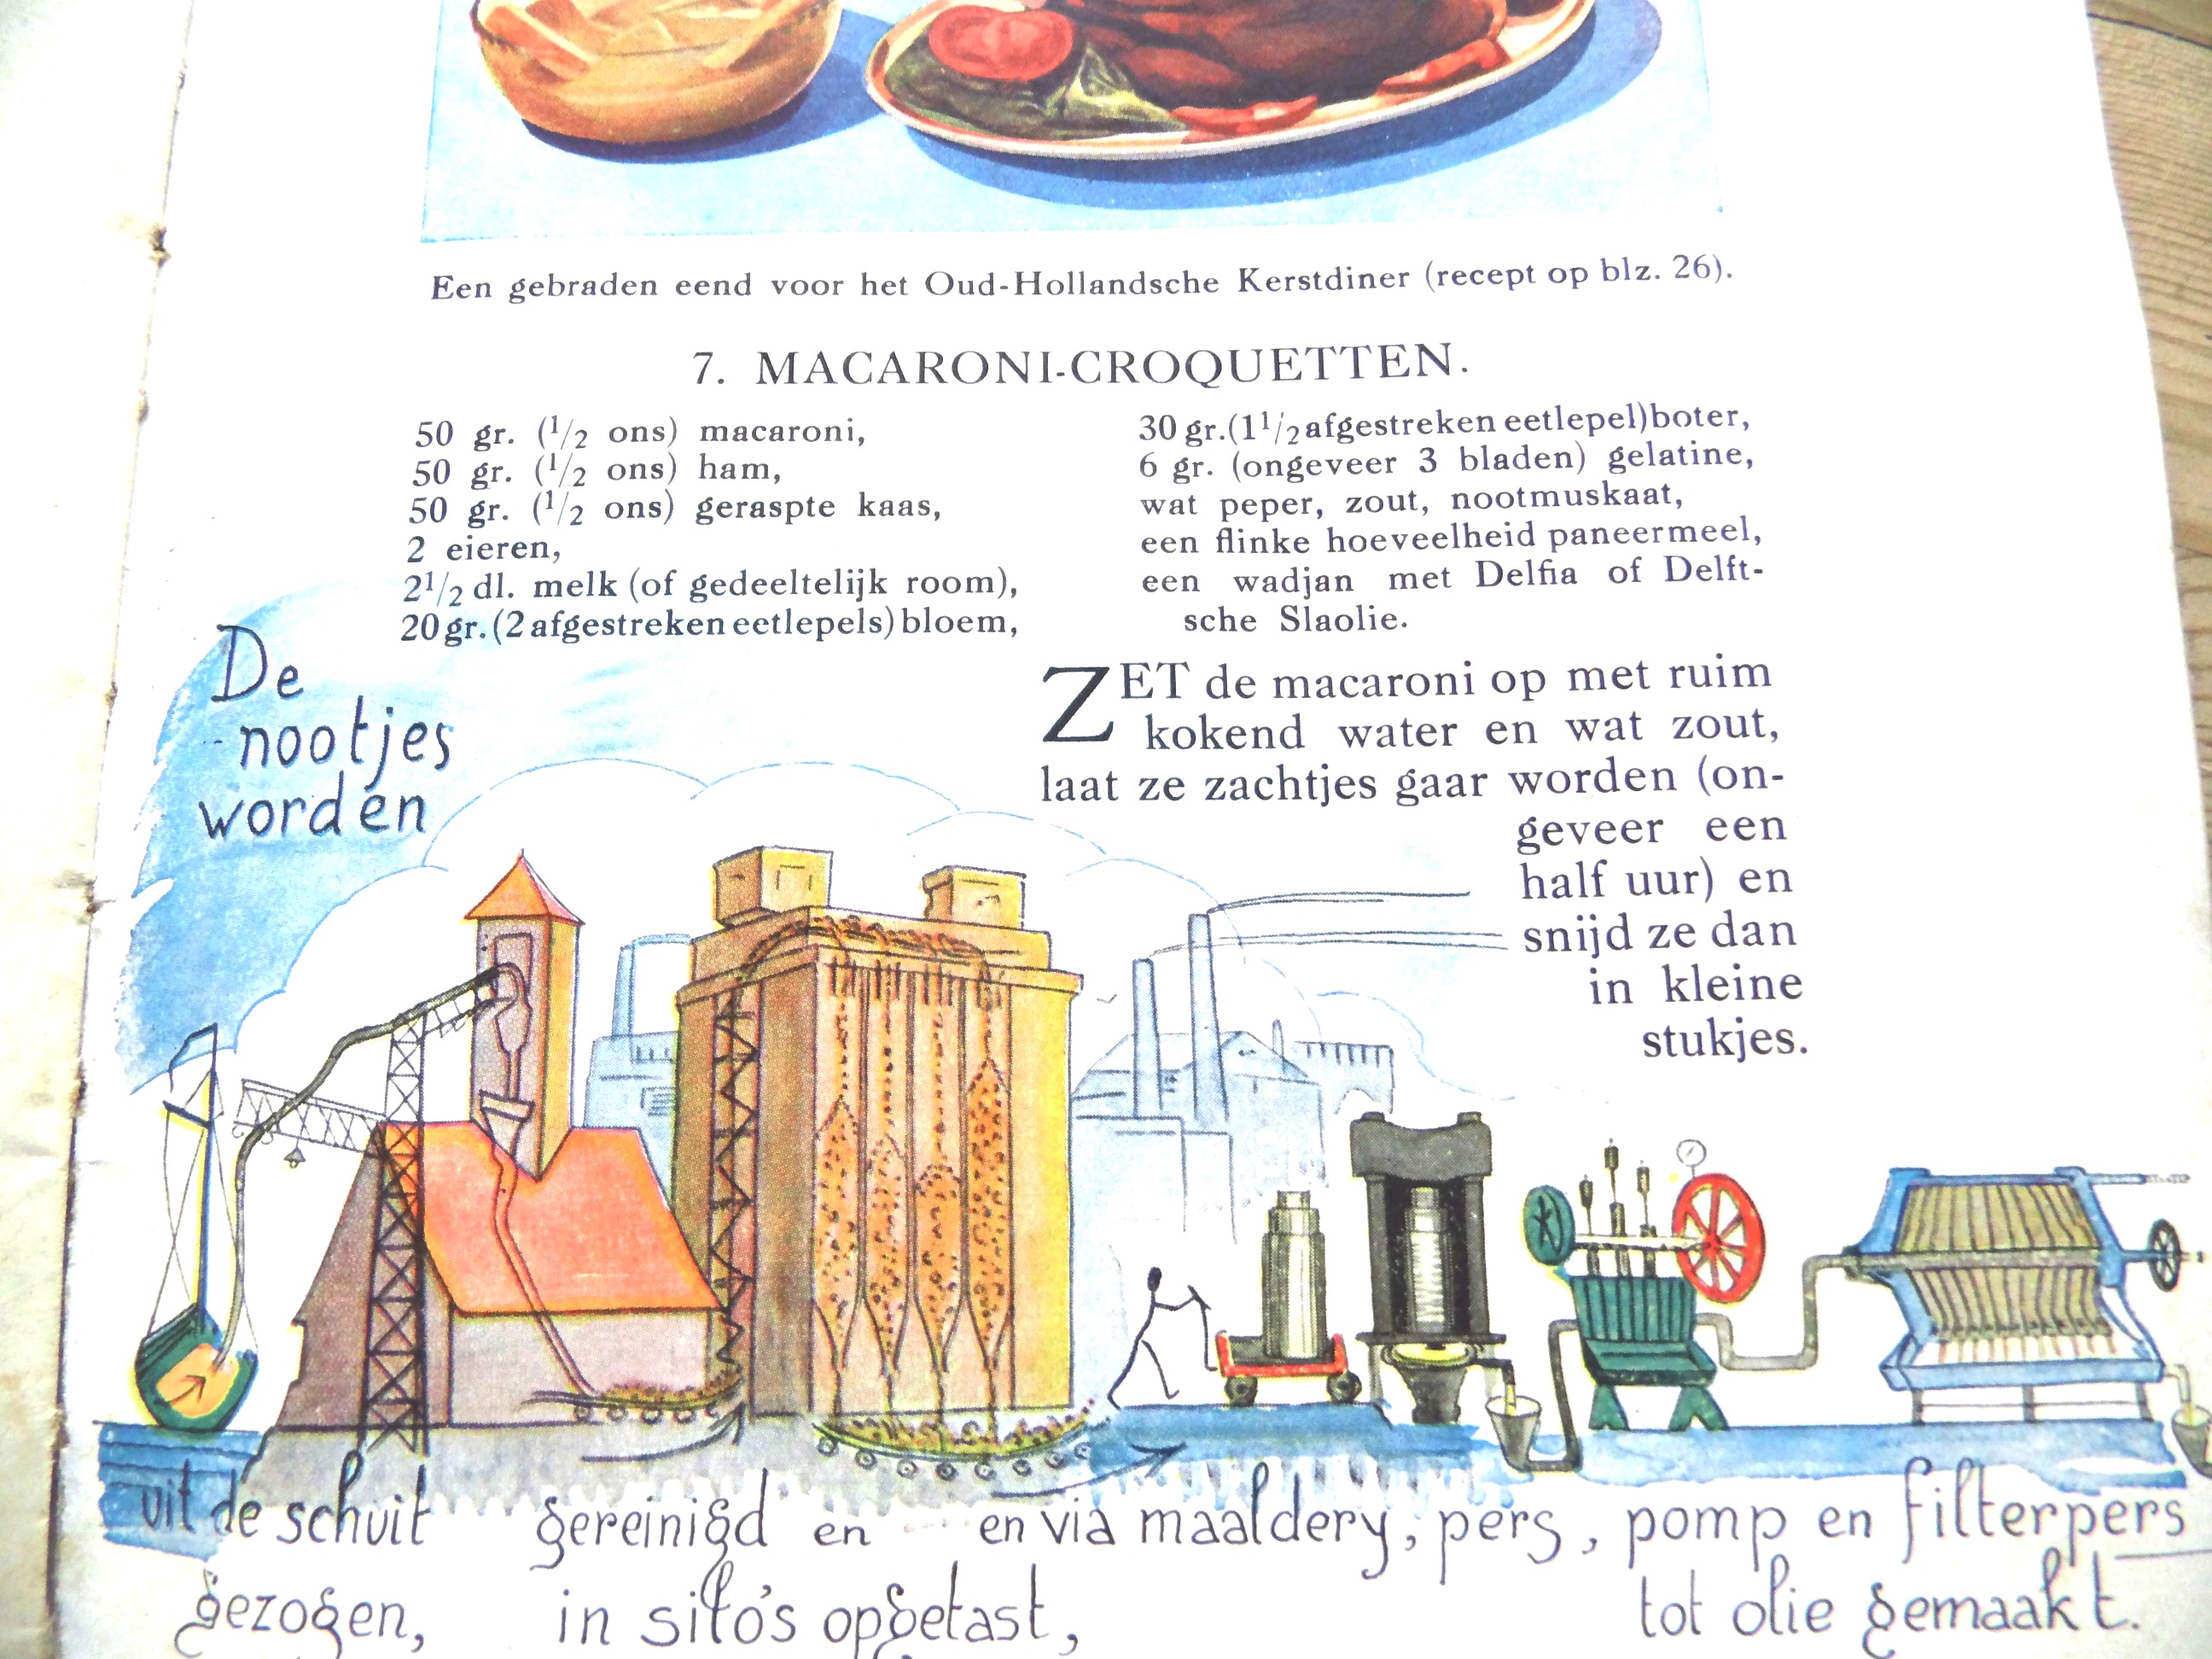 Een gebraden eend voor het Oud-Hollandsche Kerstdiner (recept op blz. 26).
7. MACARONI-CROQUETTEN.
50 gr. (1/2 ons) macaroni,
50 gr. (1/2 ons) ham,
50 gr. (1/2 ons) geraspte kaas,
2 eieren,
2 1/2 dl. melk (of gedeeltelijk room),
20 gr. (2 afgestreken eetlepels) bloem,
30 gr. (1 1/2 afgestreken eetlepel) boter,
6 gr. (ongeveer 3 bladen) gelatine,
wat peper, zout, nootmuskaat,
een flinke hoeveelheid paneermeel,
een wadjan met Delfia of Delft-
sche Slaolie.
ZET de macaroni op met ruim
kokend water en wat zout,
laat ze zachtjes gaar worden (on-
geveer een
half uur) en
snijd ze dan
in kleine
stukjes.
De
nootjes
worden
uit de schuit
gezogen,
gereinigd en
in silo's opgetast,
en via maaldery, pers, pomp en filterpers
tot olie gemaakt.